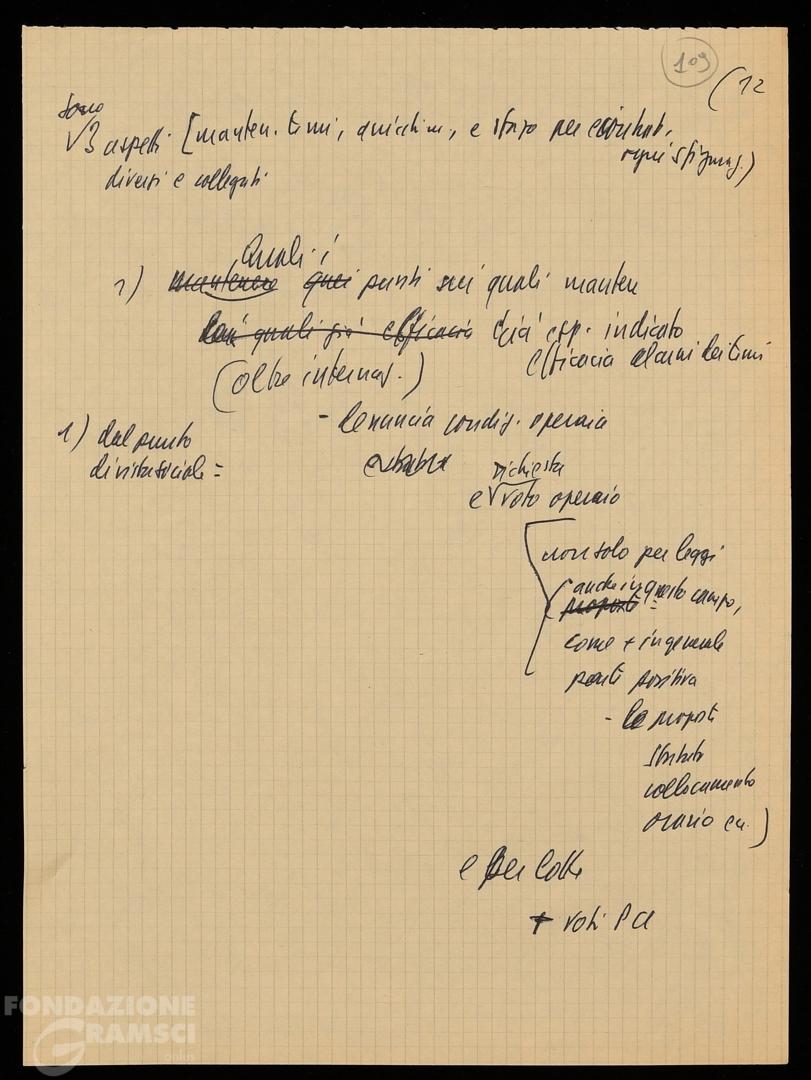 109
(12
sono
3 aspetti [manten. temi, e sforzo per
diversi e collegati
Quali i
1) mantenere quei punti sui quali manten
quali già efficacia già esp. indicato
(oltre internaz.) efficacia alcuni dei temi
- denuncia condiz. operaia
1) dal punto
di vista sociale =
richiesta
e voto operaio
non solo per leggi
(anche in questo campo,
proposte =
come + in generale
parte positiva
- le proposte
statuto
collocamento
orario ecc.)
e per lotte
+ voti PCI
FONDAZIONE
GRAMSCI
onlus